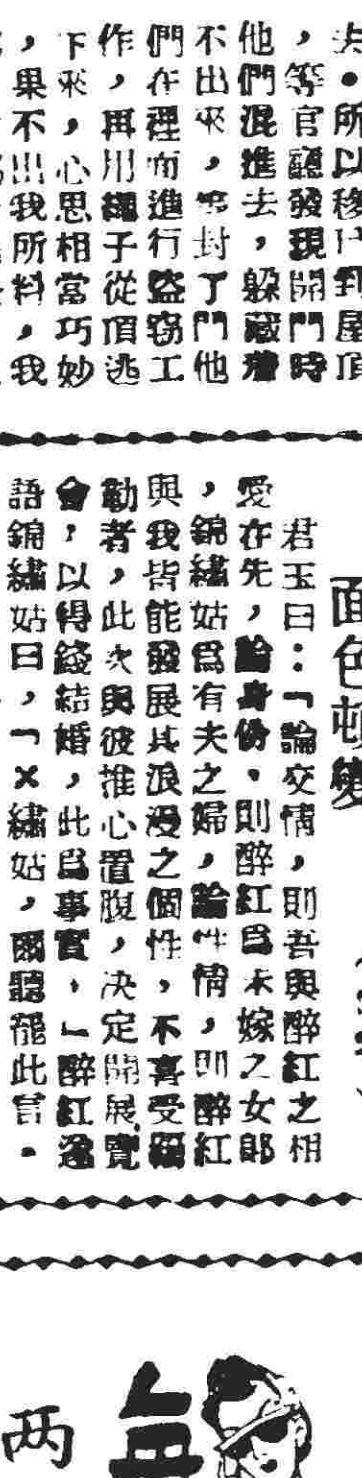 夫。所以移口到屋頂
，等官廳發現開門時
他們混進去，躲藏着
不出來，等封了門他
們在裡面進行盜窃工
作，再用繩子從頂逃
下來，心思相當巧妙
，果不出我所料，我
面色頓變
君玉曰：「論交情，則吾與醉紅之相
愛在先，論身份，則醉紅爲未嫁之女郎
，錦繡姑爲有夫之婦，論性情，則醉紅
與我皆能發展其浪漫之個性，不喜受
勸者，此次與彼推心置腹，决定開展覽
會，以得錢結婚，此爲事實，」醉紅逸
語錦繡姑曰，「×繡姑，爾聽罷此言。
两